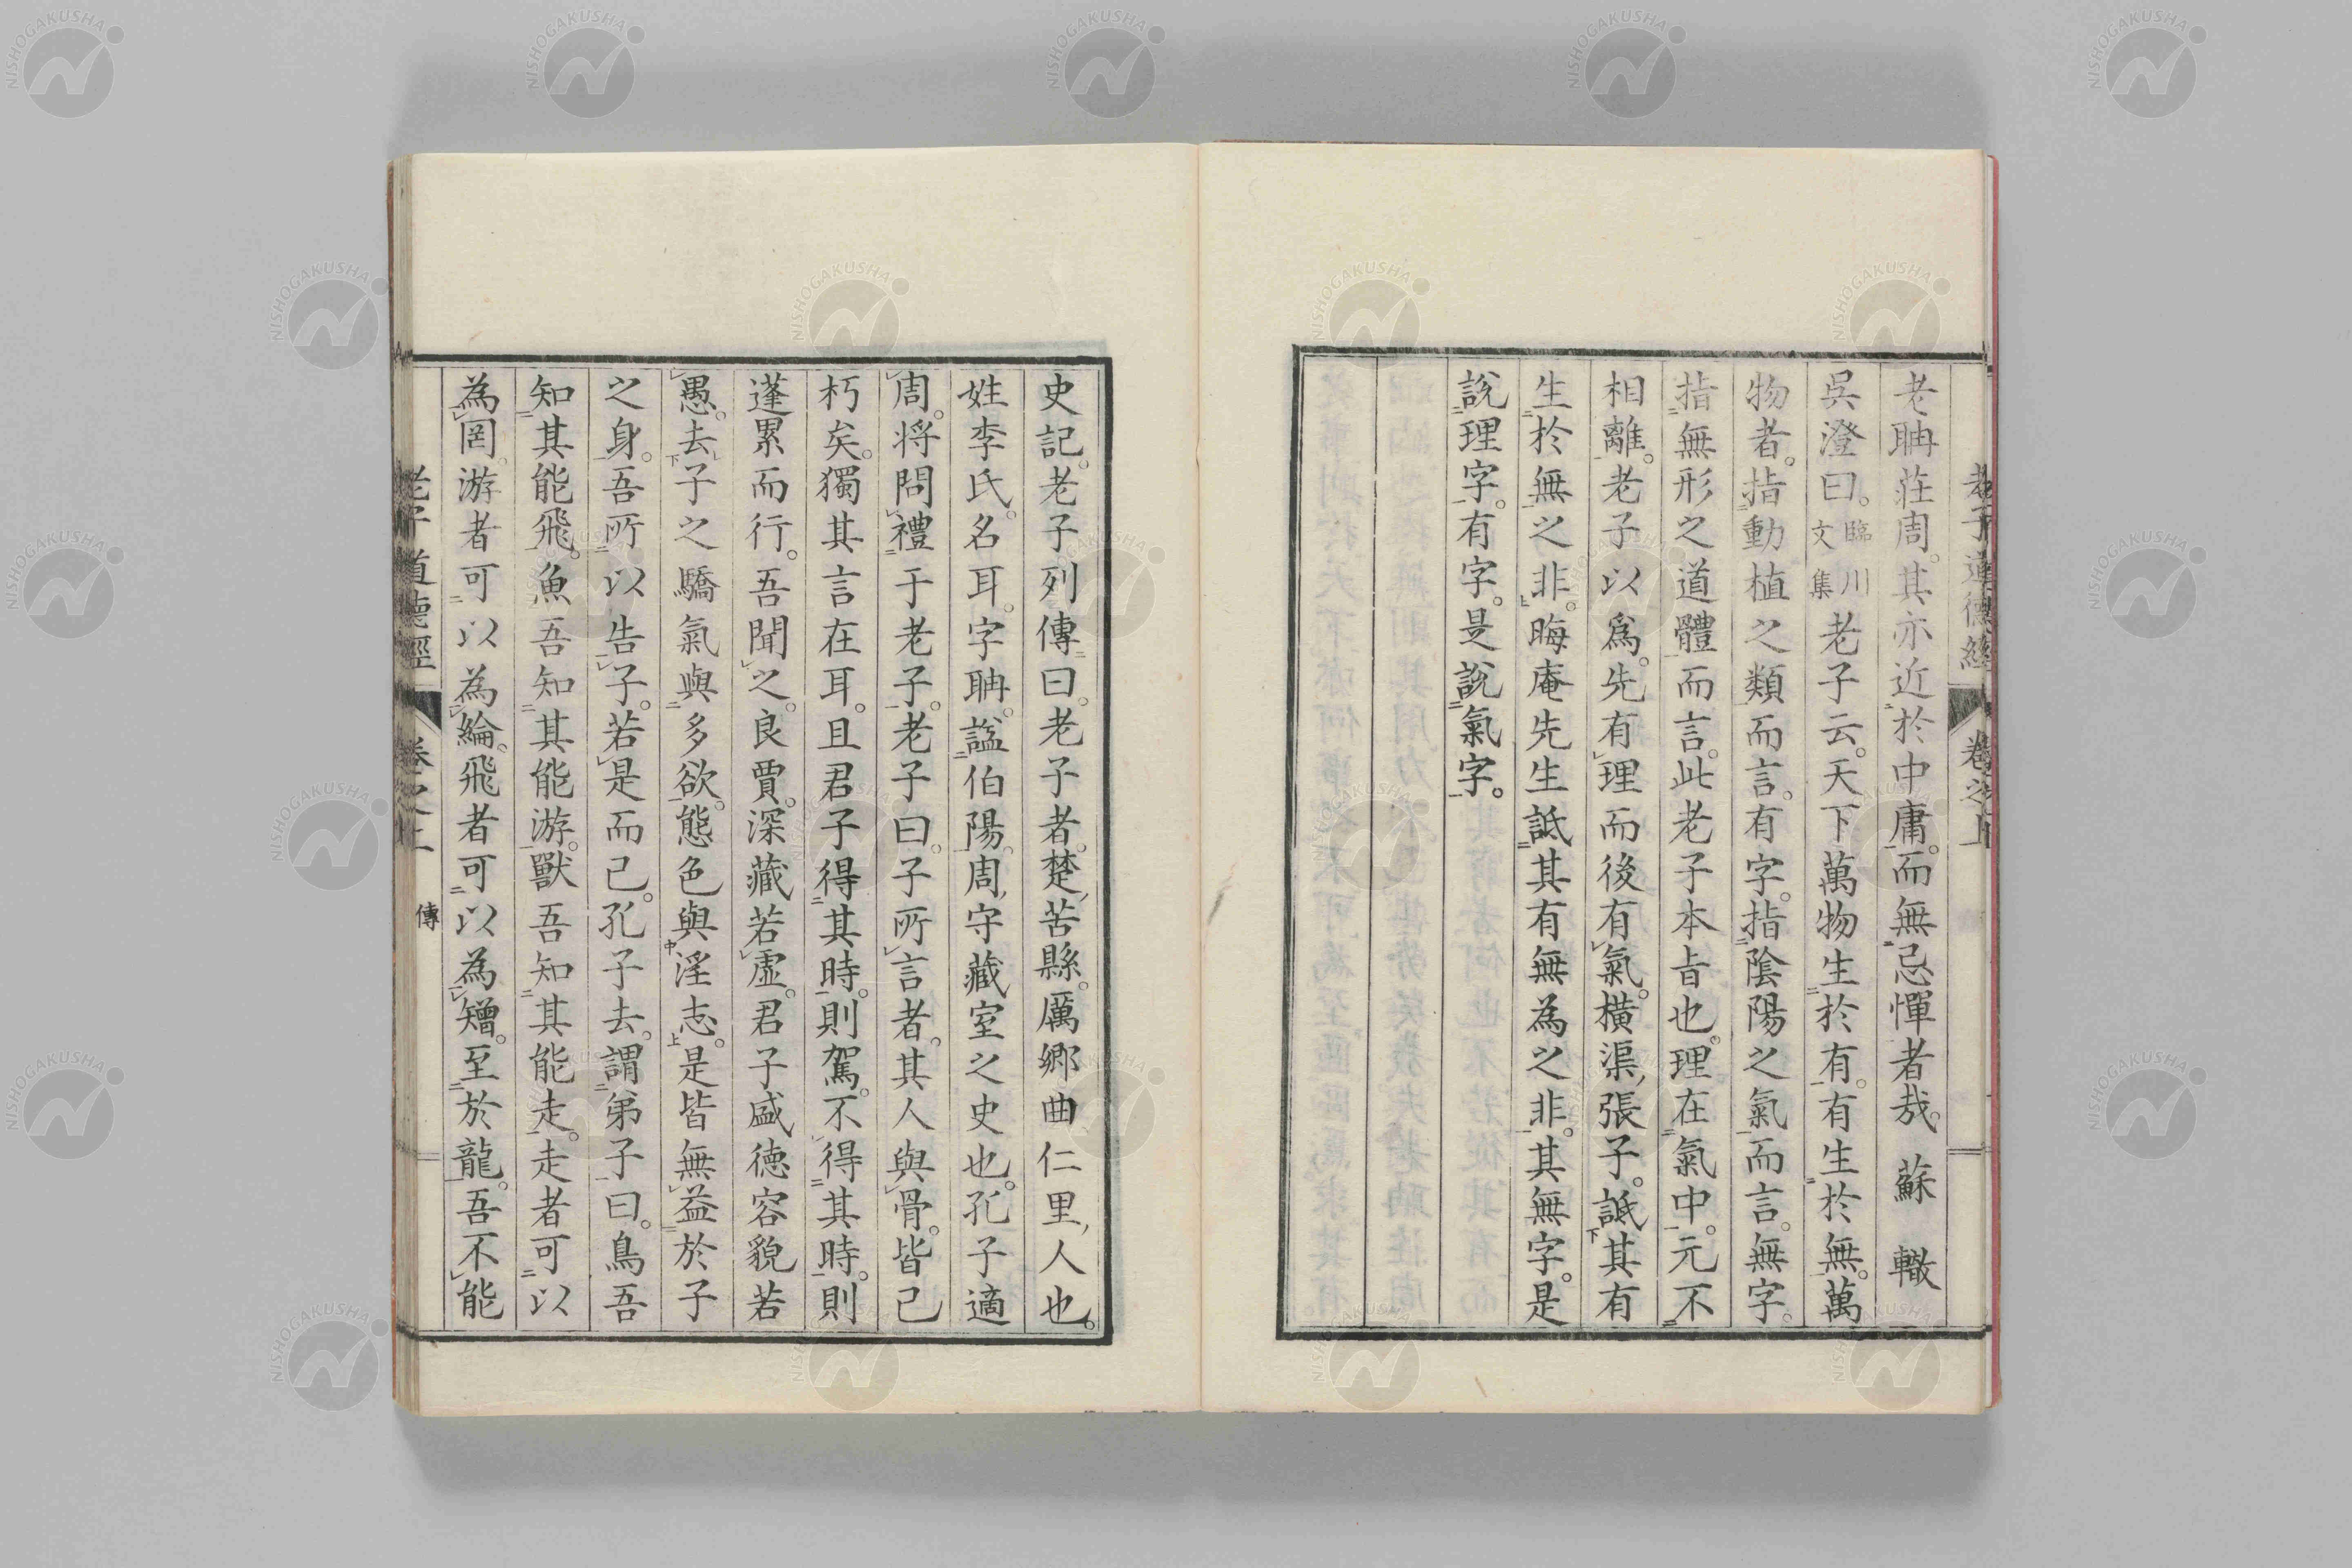 老子道德經 卷之上
老聃莊周。其亦近於中庸。而無忌憚者哉。蘇轍
吳澄曰。臨川文集老子云。天下萬物生於有。有生於無。萬
物者。指動植之類而言。有字。指陰陽之氣而言。無字。
指無形之道體而言。此老子本旨也。理在氣中。元不
相離。老子以爲。先有理而後有氣。橫渠張子。詆其有
生於無之非。晦庵先生詆其有無為之非。其無字。是
說理字。有字。是說氣字。
史記。老子列傳曰。老子者。楚苦縣。厲鄉曲仁里人也。
姓李氏。名耳。字聃。諡伯陽。周守藏室之史也。孔子適
周。將問禮于老子。老子曰。子所言者。其人與骨。皆已
朽矣。獨其言在耳。且君子得其時。則駕。不得其時。則
蓬累而行。吾聞之。良賈。深藏若虛。君子盛德容貌若
愚。去子之驕氣與多欲。態色與淫志。是皆無益於子
之身。吾所以告子。若是而已。孔子去。謂弟子曰。鳥吾
知其能飛。魚吾知其能游。獸吾知其能走。走者可以
為罔。游者可以為綸。飛者可以為矰。至於龍。吾不能
老子道德經 卷之上 傳
NISHOGAKUSHA